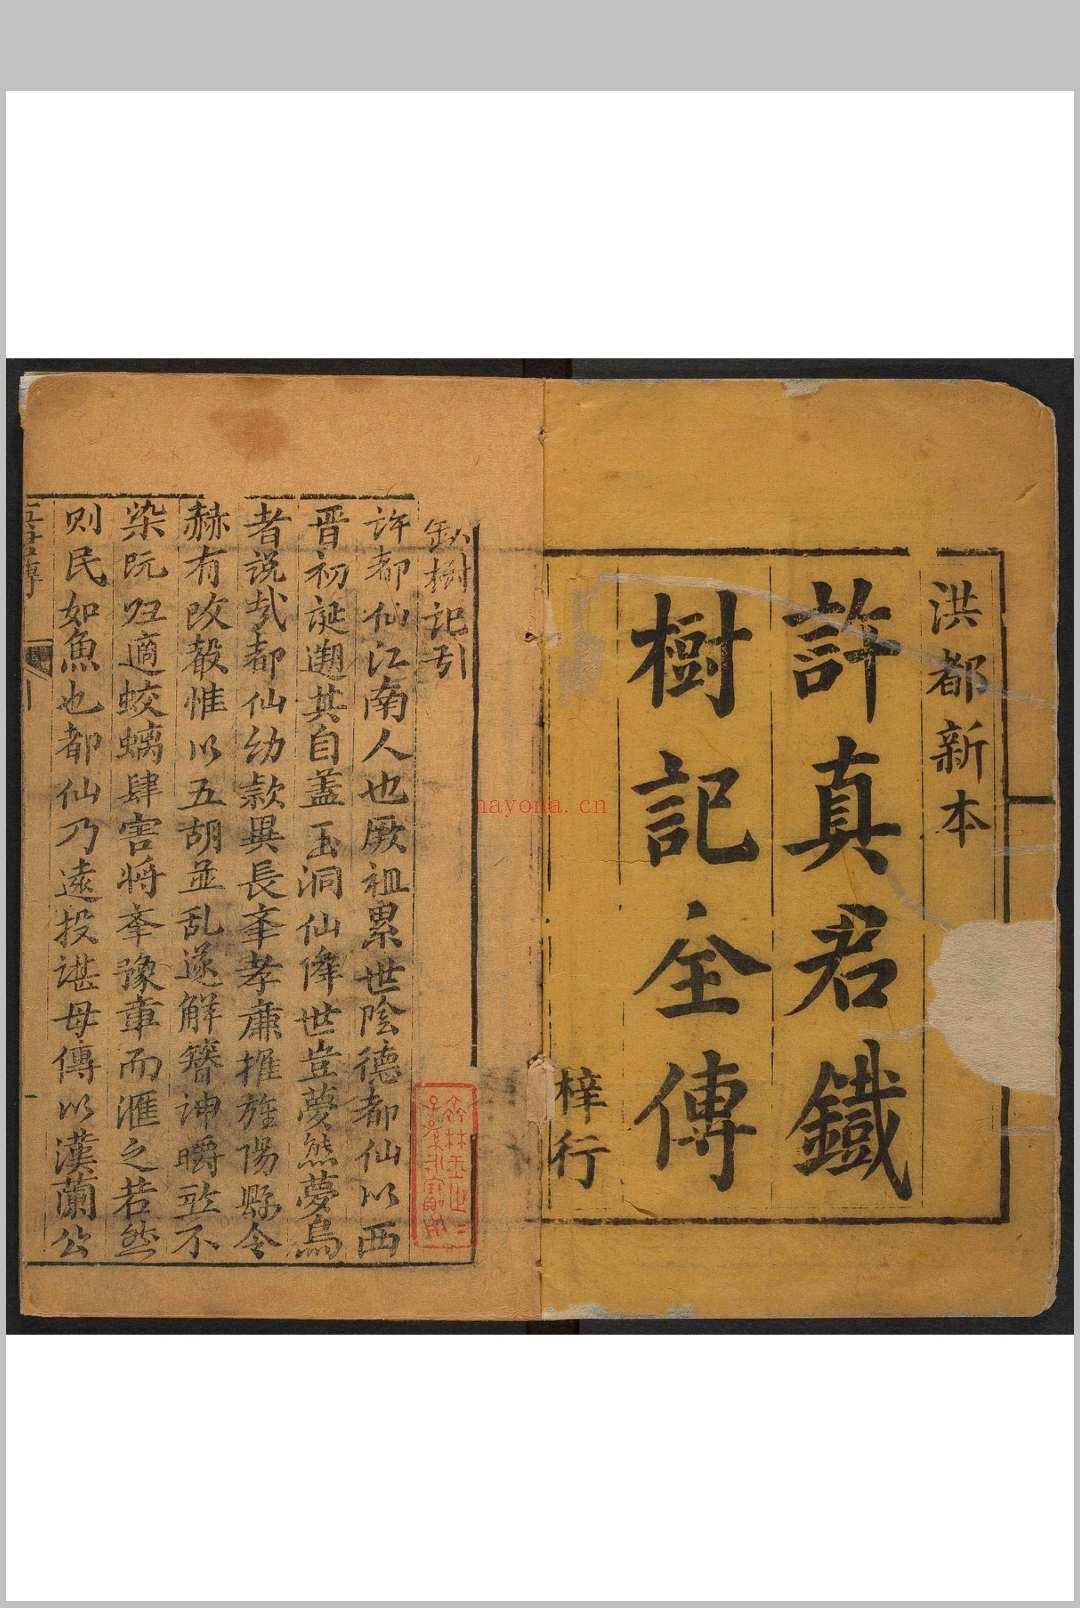 洪都新本
許真君鐵
樹記全傳
梓行
鉄樹記引
許都仙江南人也厥祖累世陰德都仙以西
晋初誕遡其自蓋玉洞仙降世豈夢熊夢鳥
者說㢤都仙幼款異長峯孝亷擢旌陽縣令
赫有政殸惟以五胡並乱遂解簪神嚼𫠦不
染既归適蛟螭肆害将峯豫章而滙之若然
则民如魚也都仙乃遠投諶母傳以漢蘭公
nayona.cn